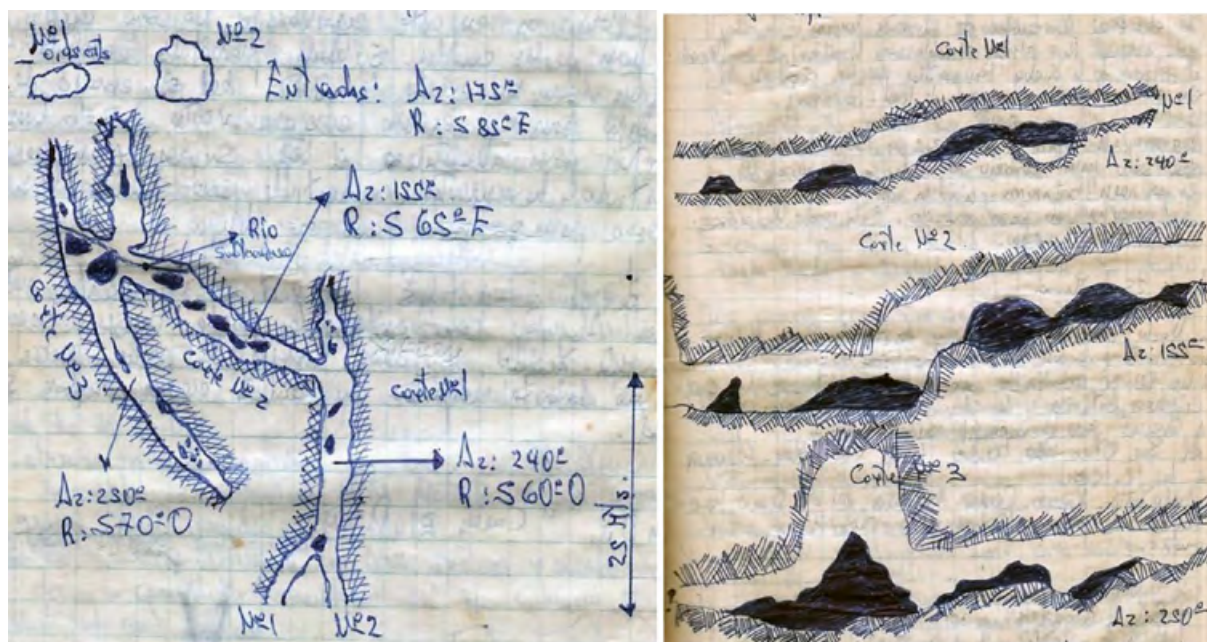 Nº1
Nº2
Entradas: Az: 175º
R: S 85º E
Az: 155º
R: S 65º E
Río
Corte Nº3
Corte Nº2
Corte Nº1
Az: 240º
R: S 60º O
Az: 250º
R: S 70º O
25 Mts.
Nº1 Nº2
Corte Nº1
Nº1
Az: 240º
Corte Nº2
Az: 155º
Corte Nº 3
Az: 250º